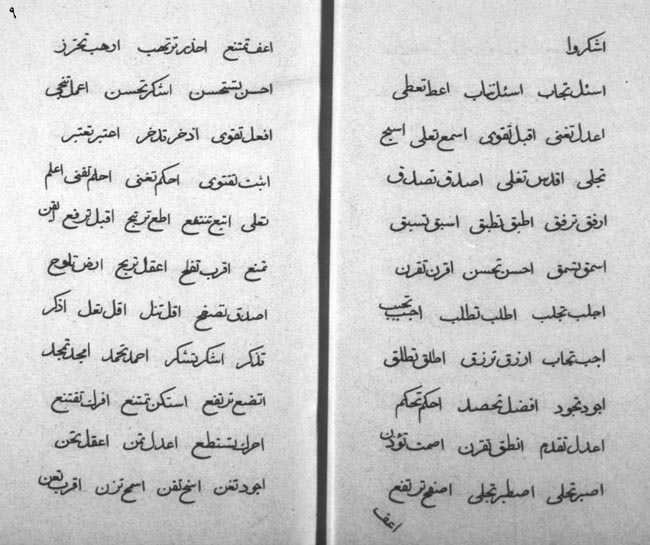 اشكروا
اسئل تجاب اسئل تهاب اعط تعطى
اعدل تغنى اقبل تقوى اسمع تعلى اسبح
تجلى اقدس تغلى اصدق تصدق
ارفق ترفق اطبق تطبق اسبق تسبق
اسمق تسمق احسن تحسن اقرن تقرن
اجلب تجلب اطلب تطلب احبب تحبب
اجب تجاب ارزق ترزق اطلق تطلق
اجود تجود افضل تحصد احكم تحكم
اعدل تقدم انطق تقرن اصمت تؤذن
اصبر تحلى اصطبر تجلى اصفح ترتفع
اعف
٩
اعف تمتنع احذر ترتهب ارهب تحترز
احسن تستحسن اشكر تحسن اعمل تنجى
افعل تقوى اذخر تدخر اعتبر تعتبر
اثبت تقتوى احكم تغنى احلم تفنى اعلم
تعلى اتبع تنتفع اطع تربح اقبل ترفع
تمنع اقرب تفلح اعقل تربح ارض
اصدق تصفح اقل تنل اقل تقل اذكر
تذكر اشكر تشكر احمد تحمد امجد تمجد
اتضع ترتفع استكن تمتنع تقتنع
تستطع اعدل اعقل
اجود اسمح اقرب